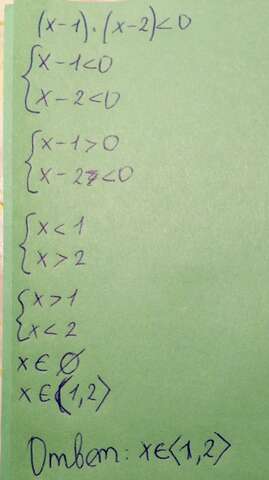 (x-1)·(x-2)<0
x-1<0
x-2<0
x-1>0
x-2<0
x<1
x>2
x>1
x<2
x∈∅
x∈(1,2)
Ответ: x∈(1,2)